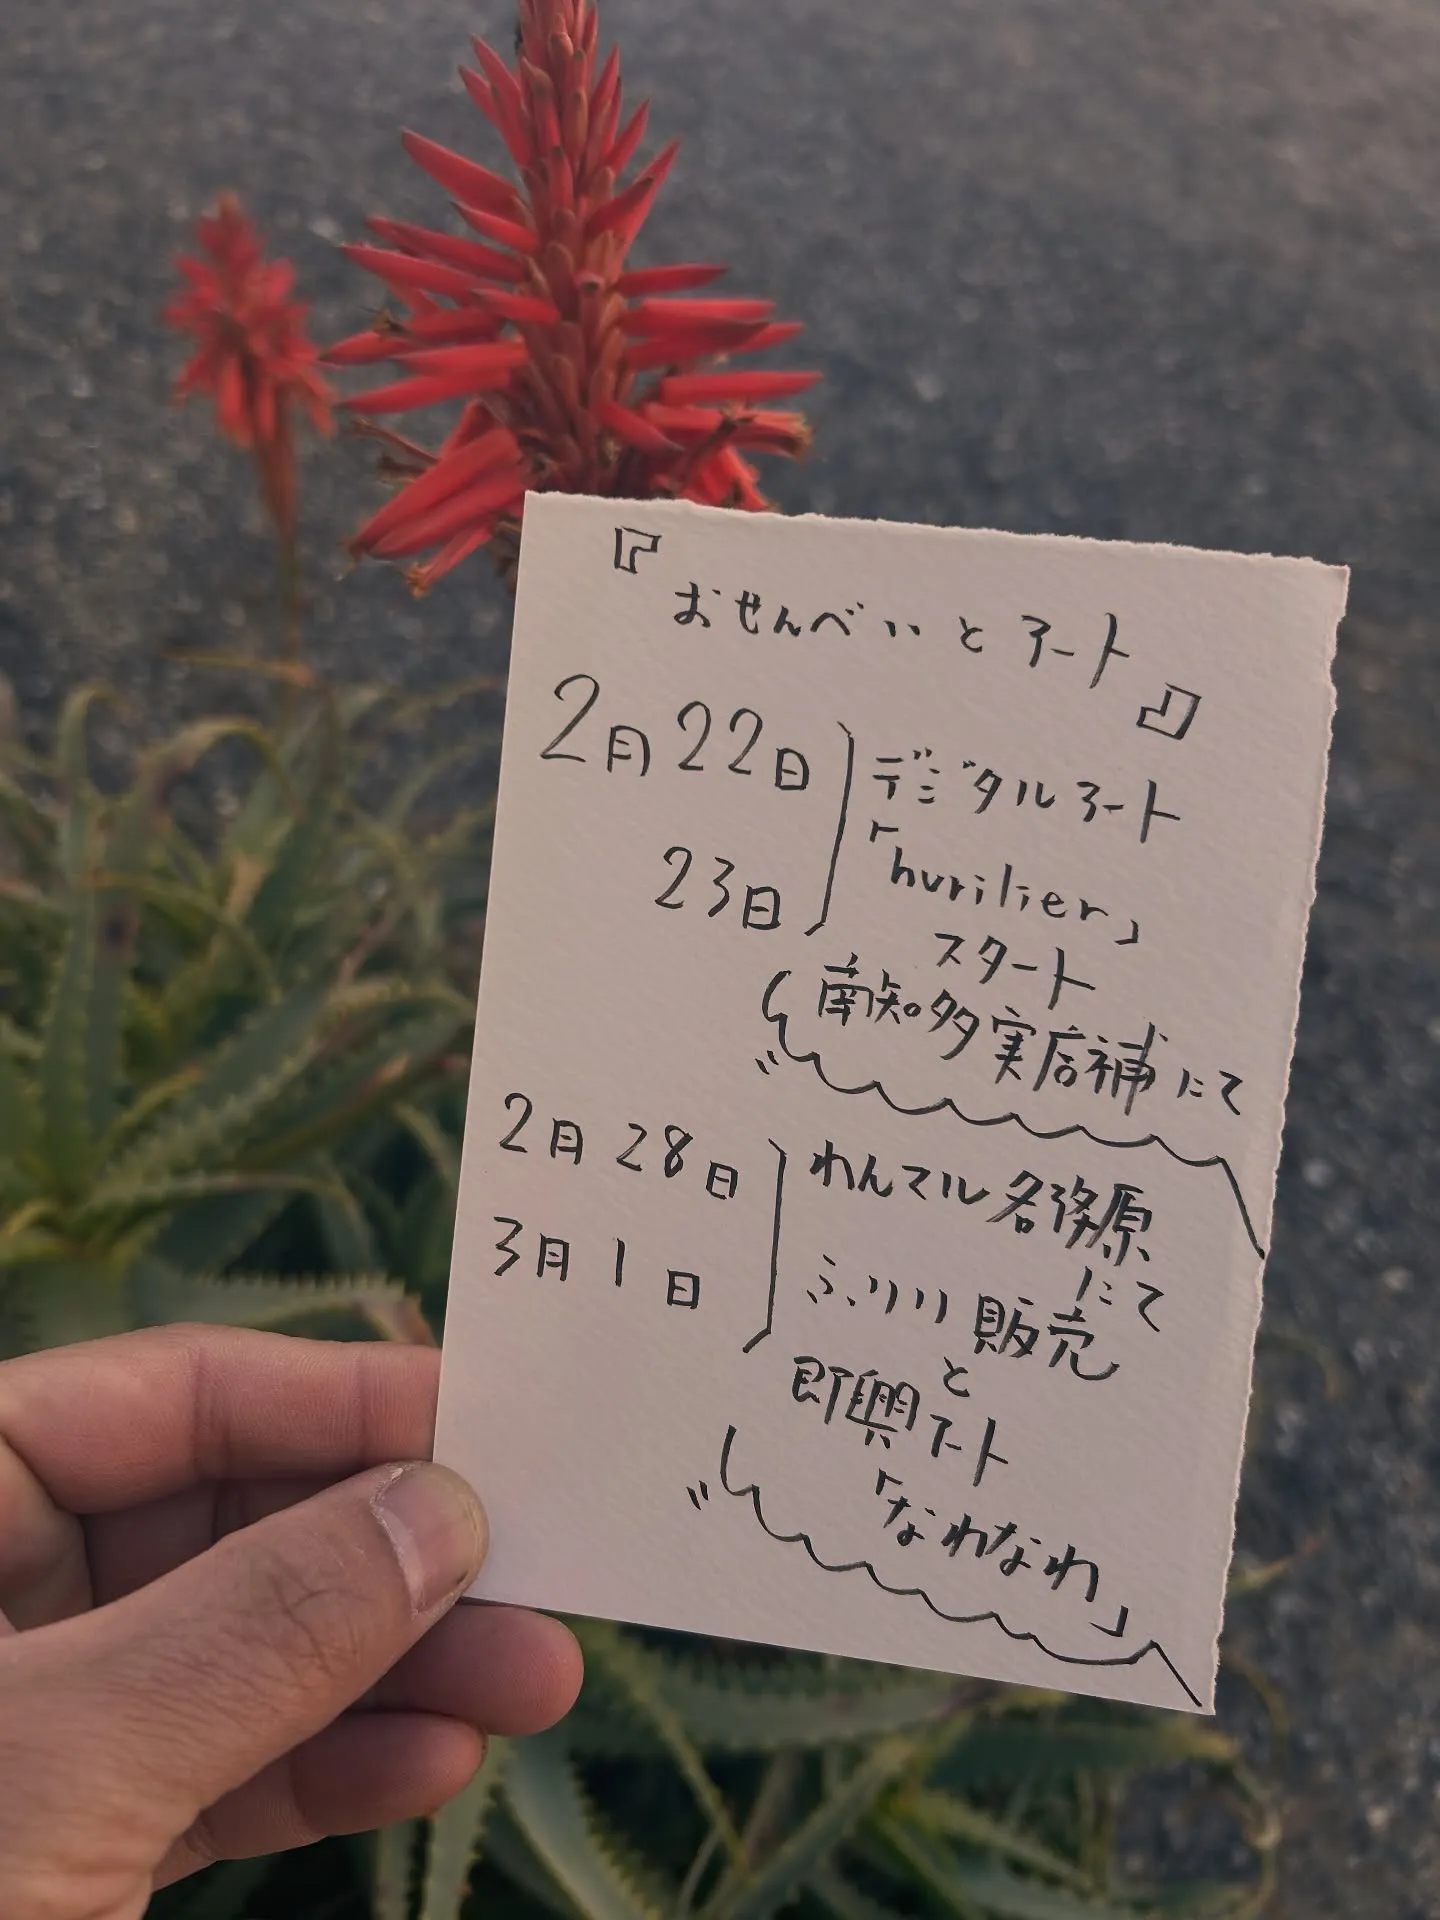 『おせんべいとアート』
2月22日
23日
デジタルアート
「hurilier」
スタート
南知多実店補にて
2月28日
3月1日
わんマル各務原
にて
ふりり販売
と
即興アート
「なわなわ」